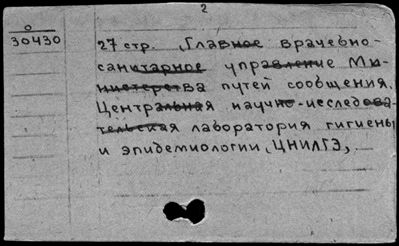 2
0
30430
27 стр. Главное врачебно-
санитарное управление Ми-
нистерства путей сообщения.
Центральная научно-исследова-
тельская лаборатория гигиены
и эпидемиологии, ЦНИЛГЭ,